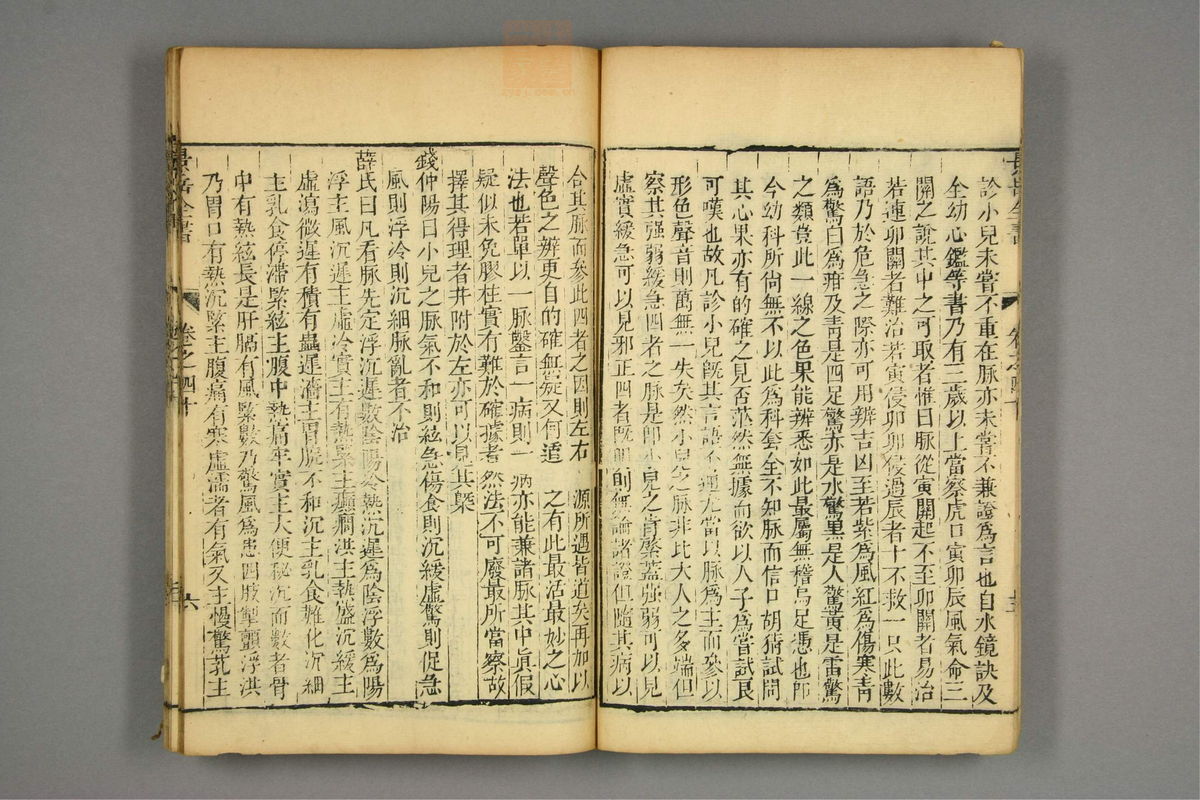 診小兒未嘗不重在脈亦未嘗不兼證爲言也自水鏡訣及
全幼心鑑等書乃有三歲以上當察虎口寅卯辰風氣命三
關之說其中之可取者惟曰脈從寅關起不至卯關者易治
若連卯關者難治若寅侵卯卯侵過辰者十不救一只此數
語乃於危急之際亦可用辨吉凶至若紫爲風紅爲傷寒青
爲驚白爲疳及青是四足驚赤是水驚黑是人驚黃是雷驚
之類竟此一線之色果能辨悉如此最屬無稽烏足憑也即
今幼科所尚無不以此爲科套全不知脈而信口胡猜試問
其心果亦有的確之見否茫然無據而欲以人子爲嘗試良
可嘆也故凡診小兒旣其言語不通尤當以脈爲主而參以
形色聲音則萬無一失矣然小兒之脈非比大人之多端但
察其强弱緩急四者之脈是即小兒之肯綮蓋强弱可以見
虛實緩急可以見邪正四者旣明則無論諸證但隨其病以
合其脈而參此四者之因則左右源所遇皆道矣再加以
聲色之辨更自的確無疑又何適之有此最活最妙之心
法也若單以一脈鑿言一病則一病亦能兼諸脈其中眞假
疑似未免膠柱實有難於確據者然法不可廢最所當察故
擇其得理者并附於左亦可以見其槩
錢仲陽曰小兒之脈氣不和則絃急傷食則沉緩虛驚則促急
風則浮冷則沉細脈亂者不治
薛氏曰凡看脈先定浮沉遲數陰陽冷熱沉遲爲陰浮數爲陽
浮主風沉遲主虛冷實主有熱緊主癲癎洪主熱盛沉緩主
虛瀉微遲有積有蟲遲濇主胃脘不和沉主乳食難化沉細
主乳食停滯緊絃主腹中熱痛牢實主大便秘沉而數者骨
中有熱絃長是肝膈有風緊數乃驚風爲患四肢掣顫浮洪
乃胃口有熱沉緊主腹痛有寒虛濡者有氣又主慢驚芤主
景岳全書
卷之四十
六